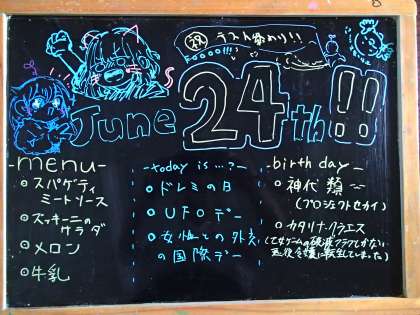 祝 テスト終わり!!
Fooo!!!
June 24th!!
-menu-
スパゲティ
ミートソース
ズッキーニの
サラダ
メロン
牛乳
-today is...?-
ドレミの日
UFOデー
女性との外交
の国際デー
-birth day-
神代 類
(プロジェクトセカイ)
カタリナ・クラエス
(乙女ゲームの破滅フラグしかない
悪役令嬢に転生してしまった)